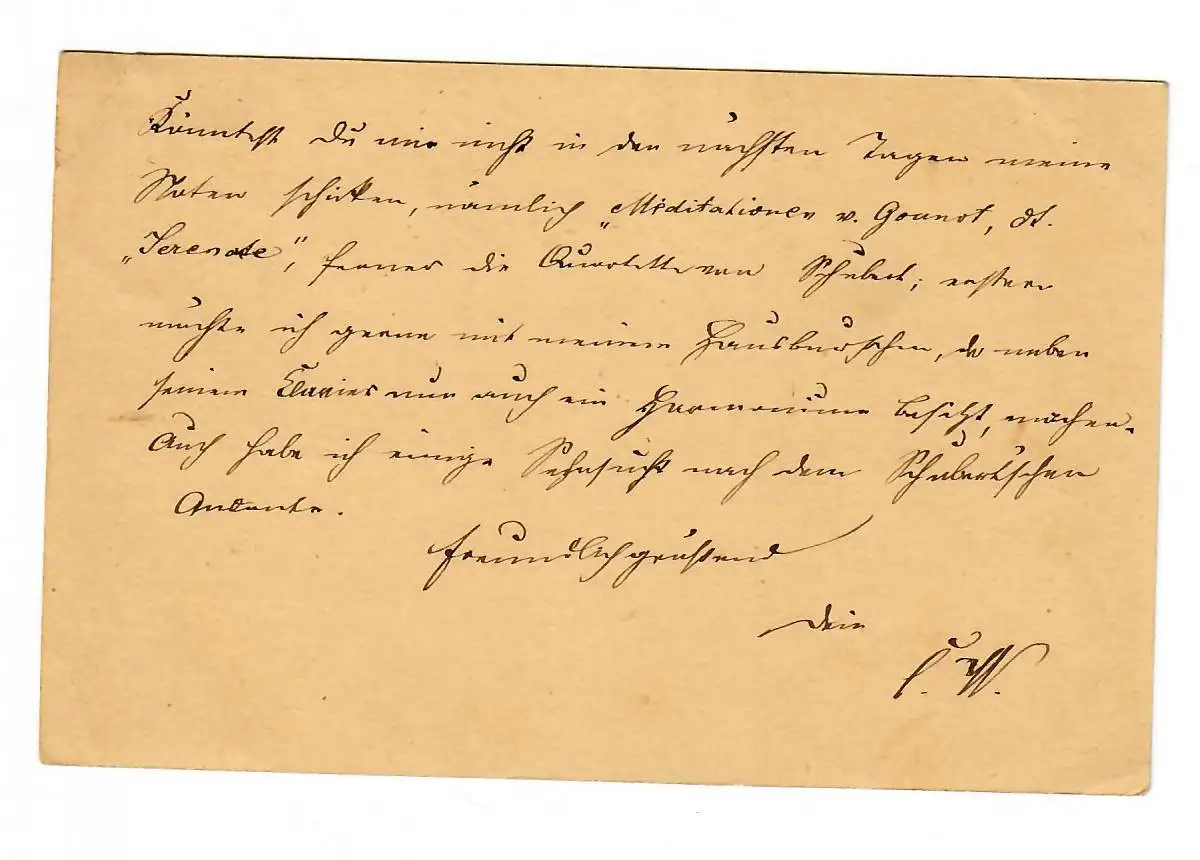 Könntest Du mir nicht in den nächsten Tagen meine
Noten schicken, nämlich „Méditationen v. Gounot, dt.
„Serenade“, ferner die Quartette von Schubert; erstere
möchte ich gerne mit meinem Hausburschen, der neben
seinem Klavier nun auch ein Harmonium besitzt, machen.
Auch habe ich einige Sehnsucht nach dem Schubert'schen
Andante.
Freundlich grüßend
Dein
C. W.